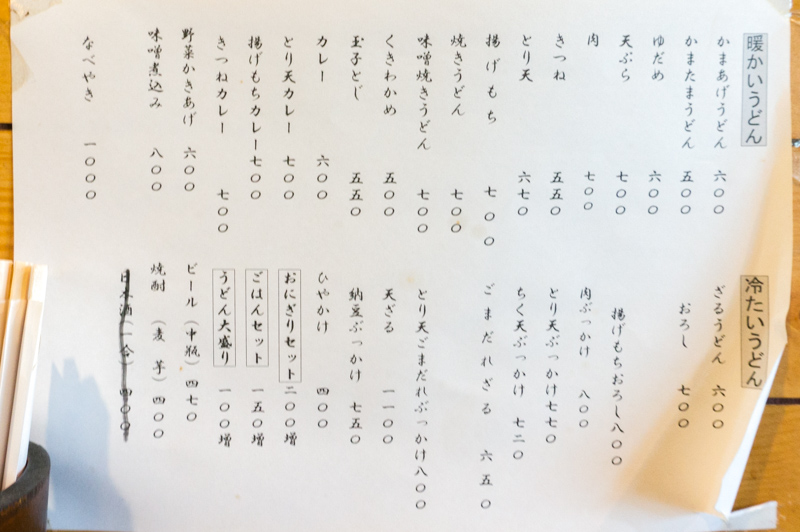 暖かいうどん
かまあげうどん 六〇〇
かまたまうどん 五〇〇
ゆだめ 六〇〇
天ぷら 七〇〇
肉 七〇〇
きつね 五五〇
とり天 六七〇
揚げもち 七〇〇
焼きうどん 七〇〇
味噌焼きうどん 七〇〇
くきわかめ 五〇〇
玉子とじ 五五〇
カレー 六〇〇
とり天カレー 七〇〇
揚げもちカレー 七〇〇
きつねカレー 七〇〇
野菜かきあげ 六〇〇
味噌煮込み 八〇〇
なべやき 一〇〇〇
冷たいうどん
ざるうどん 六〇〇
おろし 七〇〇
揚げもちおろし 八〇〇
肉ぶっかけ 八〇〇
とり天ぶっかけ 七七〇
ちく天ぶっかけ 七二〇
ごまだれざる 六五〇
とり天ごまだれぶっかけ 八〇〇
天ざる 一一〇〇
納豆ぶっかけ 七五〇
ひやかけ 四〇〇
おにぎりセット 二〇〇増
ごはんセット 一五〇増
うどん大盛り 一〇〇増
ビール(中瓶) 四七〇
焼酎 (麦 芋) 四〇〇
日本酒(一合) 四〇〇